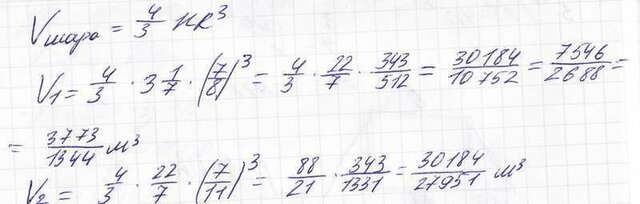 Vшара = 4/3 πR³
V₁ = 4/3 · 3 1/7 · (7/8)³ = 4/3 · 22/7 · 343/512 = 30184/10752 = 7546/2688 =
= 3773/1344 м³
V₂ = 4/3 · 22/7 · (7/11)³ = 88/21 · 343/1331 = 30184/27951 м³